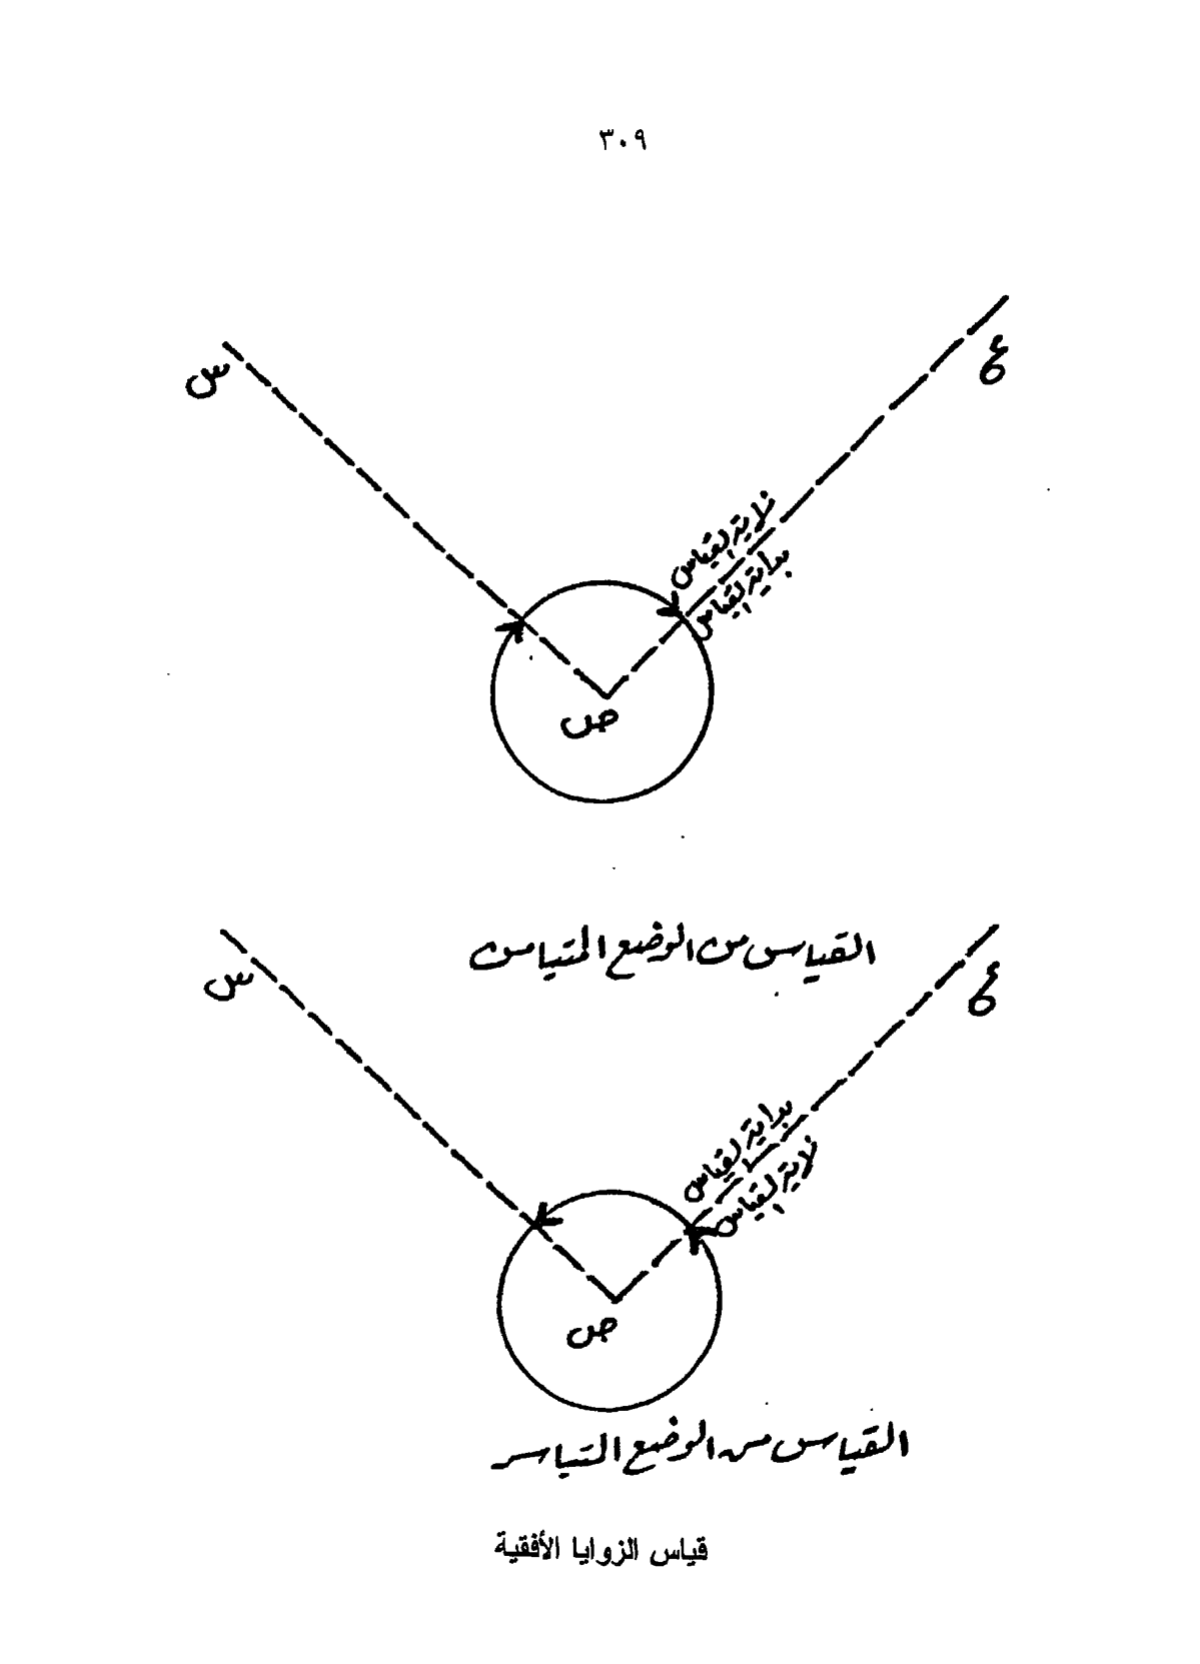 ٣٠٩
ع
س
نهاية القياس
بداية القياس
ص
القياس من الوضع المتيامن
ع
س
بداية القياس
نهاية القياس
ص
القياس من الوضع المتياسر
قياس الزوايا الأفقية